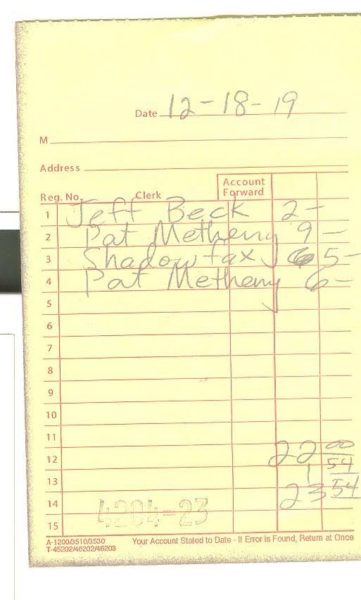 Date 12-18-19
M
Address
Reg. No. Clerk Account Forward
1 Jeff Beck 2-
2 Pat Metheny 9-
3 Shadowfax 5-
4 Pat Metheny 6-
5
6
7
8
9
10
11
12 22 00
13 1 54
14 23 54
4204-23
15
A-1200/3510/3530 Your Account Stated to Date - If Error is Found, Return at Once
T-45202/46202/46203